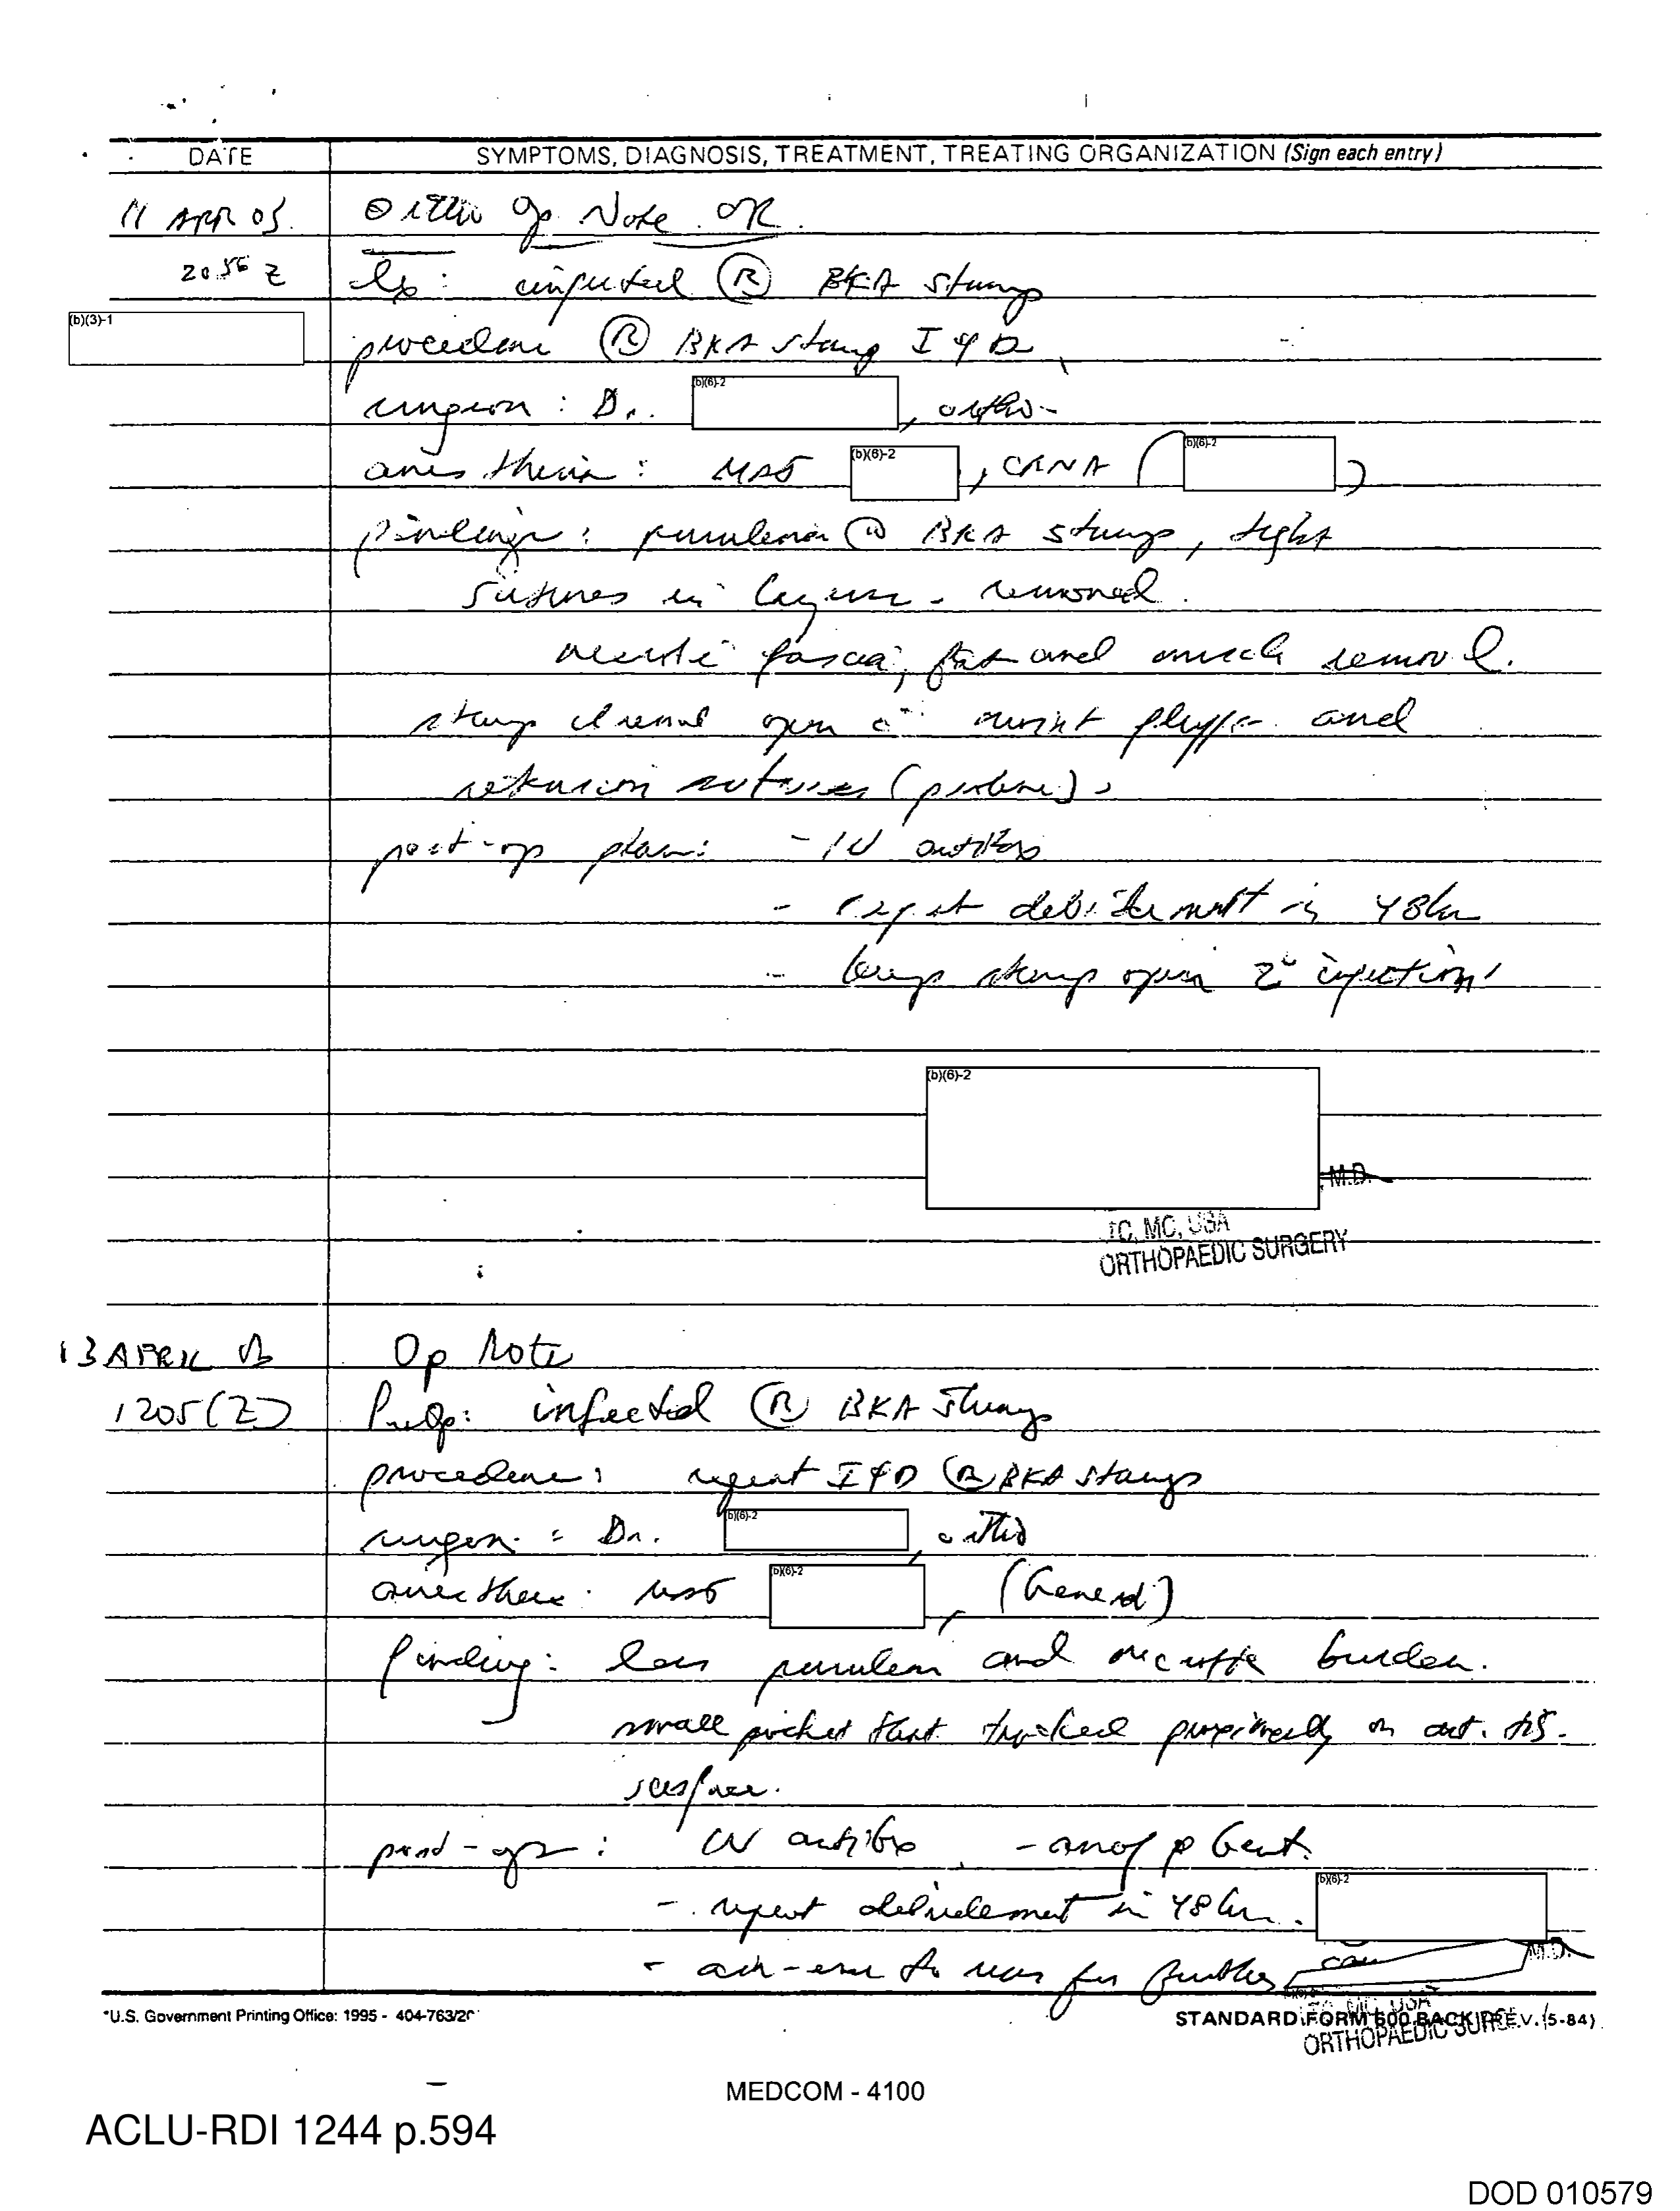 DATE SYMPTOMS, DIAGNOSIS, TREATMENT, TREATING ORGANIZATION (Sign each entry)
11 APR 03 Ortho Op Note OR
2056 Z infected (R) BKA stump
(b)(3)-1
procedure (R) BKA stump I & D
surgeon: Dr. (b)(6)-2, ortho
anesthesia: MAJ (b)(6)-2, CRNA ( (b)(6)-2 )
findings: purulence (R) BKA stump, tight
sutures in layers - removed.
necrotic fascia, fat and muscle removed.
stump cleaned open c̄ moist fluffs and
retension sutures (prolene).
post-op plan: - IV antibx
- repeat debridement in 48hr
- keep stump open 2° infection!
(b)(6)-2
M.D.
MC, USA
ORTHOPAEDIC SURGERY
13 APRIL 03 Op Note
1205(Z) PreOp: infected (R) BKA stump
procedure: repeat I & D (R) BKA stump
surgeon: Dr. (b)(6)-2, ortho
anesthesia: MAJ (b)(6)-2, (General)
finding: less purulence and necrotic burden.
small pocket that tracked proximally on ant. tib.
surface.
post-op: IV antibx - ancef & Gent.
- repeat debridement in 48hr. (b)(6)-2
- for further care
M.D.
MC, USA
ORTHOPAEDIC SURG
*U.S. Government Printing Office: 1995 - 404-763/20 STANDARD FORM 600 BACK (REV. 5-84)
MEDCOM - 4100
ACLU-RDI 1244 p.594
DOD 010579